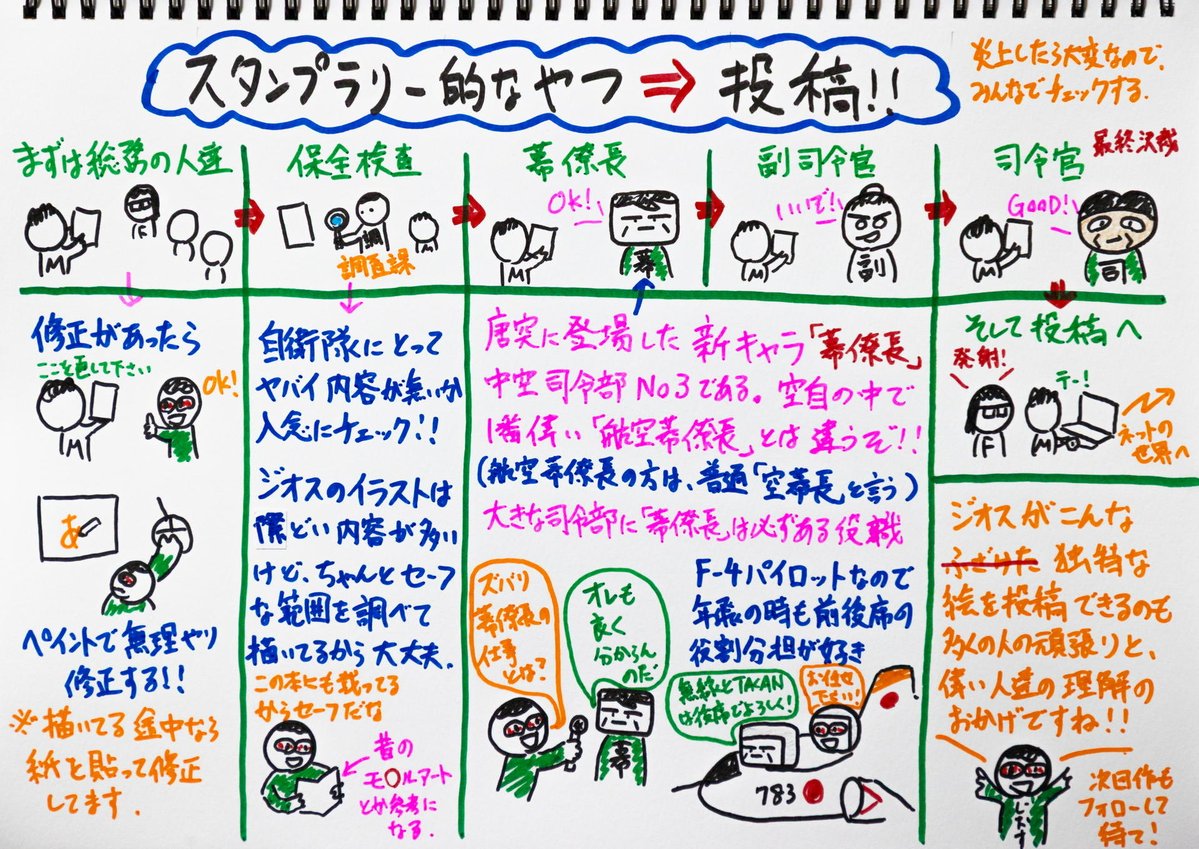 スタンプラリー的なやつ⇒投稿!!
炎上したら大変なので、
みんなでチェックする.
まずは総務の人達
F
M
修正があったら
ここを直して下さい
OK!
M
あ
ペイントで無理やり
修正する!!
※描いてる途中なら
紙を貼って修正
してます.
保全検査
調
M
調査課
自衛隊にとって
ヤバイ内容が無いか
入念にチェック!!
ジオスのイラストは
際どい内容が多い
けど、ちゃんとセーフ
な範囲を調べて
描いてるから大丈夫.
この本にも載ってる
からセーフだな
昔の
モ○ルアート
とか参考に
なる.
幕僚長
OK!
M
幕
副司令官
いいで!
M
副
唐突に登場した新キャラ「幕僚長」
中空司令部No3である。空自の中で
1番偉い「航空幕僚長」とは違うぞ!!
(航空幕僚長の方は、普通「空幕長」と言う)
大きな司令部に「幕僚長」は必ずある役職
ズバリ
幕僚長の
仕事
とは?
オレも
良く
分からん
のだ
幕
F-4パイロットなので
年取の時も前後席の
役割分担が好き
無線とTACAN
は後席でよろしく!
お任せ
下さい!
783
司令官
最終決裁
GOOD!
M
司
そして投稿へ
発射!
テー!
F
M
ネットの
世界へ
ジオスがこんな
ふざけた 独特な
絵を投稿できるのも
多くの人の頑張りと、
偉い人達の理解の
おかげですね!!
じおす
次回作も
フォローして
待て!